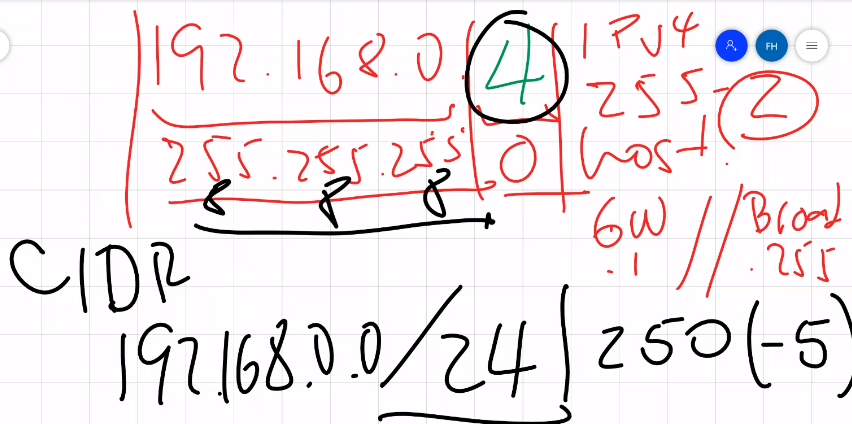 192.168.0.4
IPV4
FH
255-2
255.255.255.0
host.
8 8 8
GW // Broad
.1 .255
CIDR
192.168.0.0/24 | 250(-5)